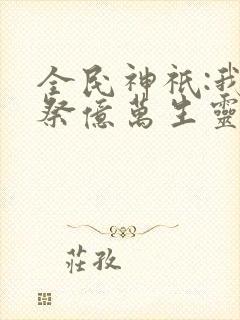 全民神祇:我
祭億萬生靈
莊孜